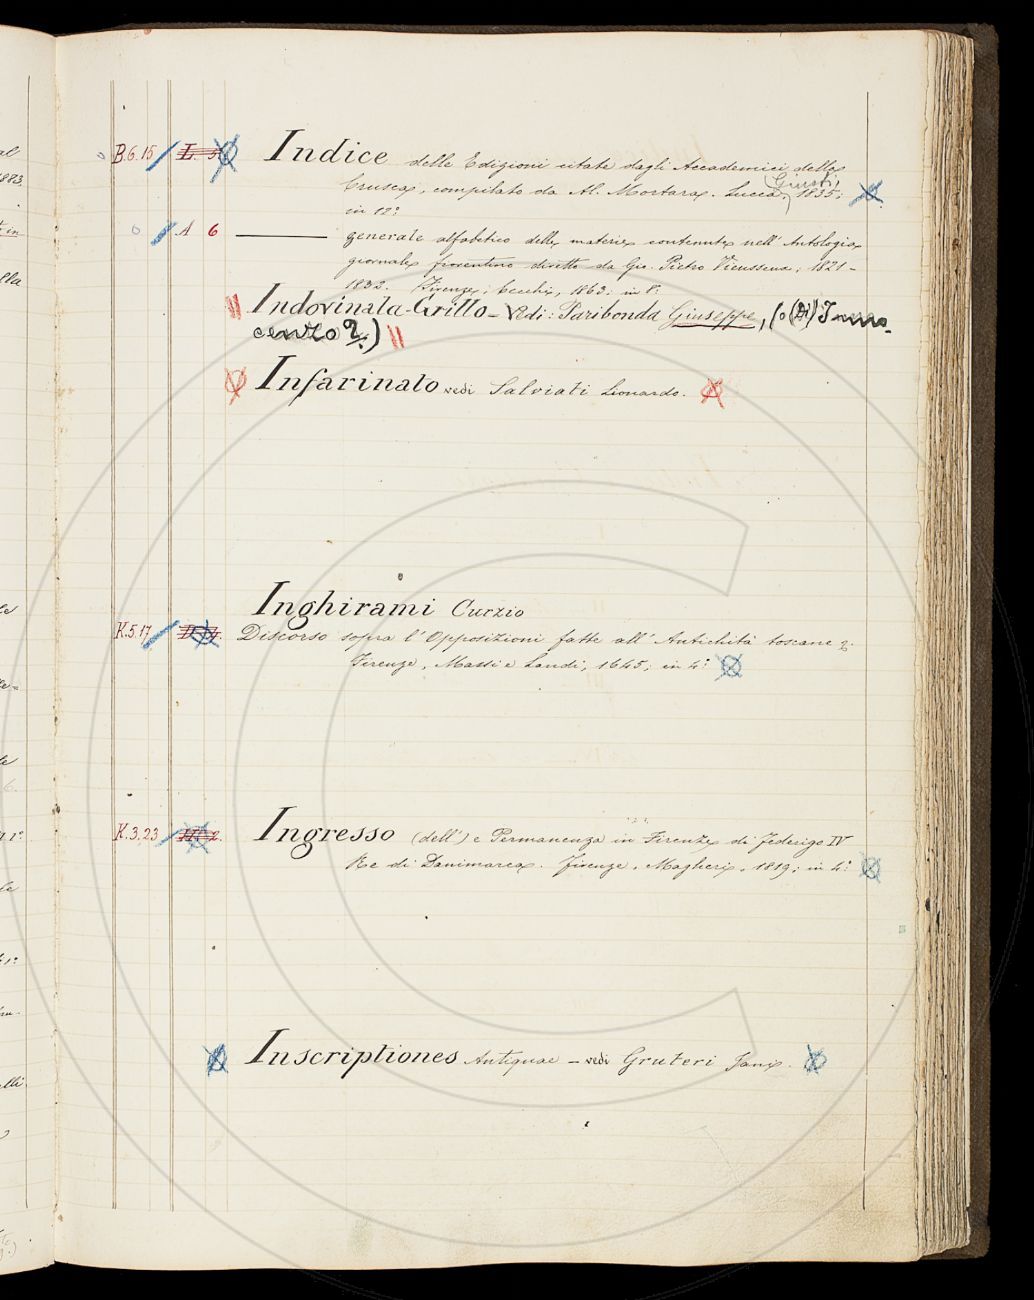 B.6.15 L. 5 Indice delle Edizioni citate dagli Accademici della
Crusca, compilato da Al. Mortara. Lucca, Giusti, 1835;
in 12°
A 6 ——— generale alfabetico delle materie contenute nell' Antologia
giornale fiorentino diretto da Gio. Pietro Vieusseux, 1821-
1832. Firenze, Cecchi, 1863; in 8°
Indovinala-Grillo - Vedi: Paribonda Giuseppe, (o (Di) Inno-
cenzo?)
Infarinato vedi Salviati Lionardo.
Inghirami Curzio
K.5.17 Discorso sopra l'Opposizioni fatte all' Antichità toscane &.
Firenze, Massi e Landi, 1645; in 4°
K.3.23 Ingresso (dell') e Permanenza in Firenze di Federigo IV
Re di Danimarca. Firenze, Magheri, 1819; in 4°
Inscriptiones Antiquae - vedi Gruteri Jani.